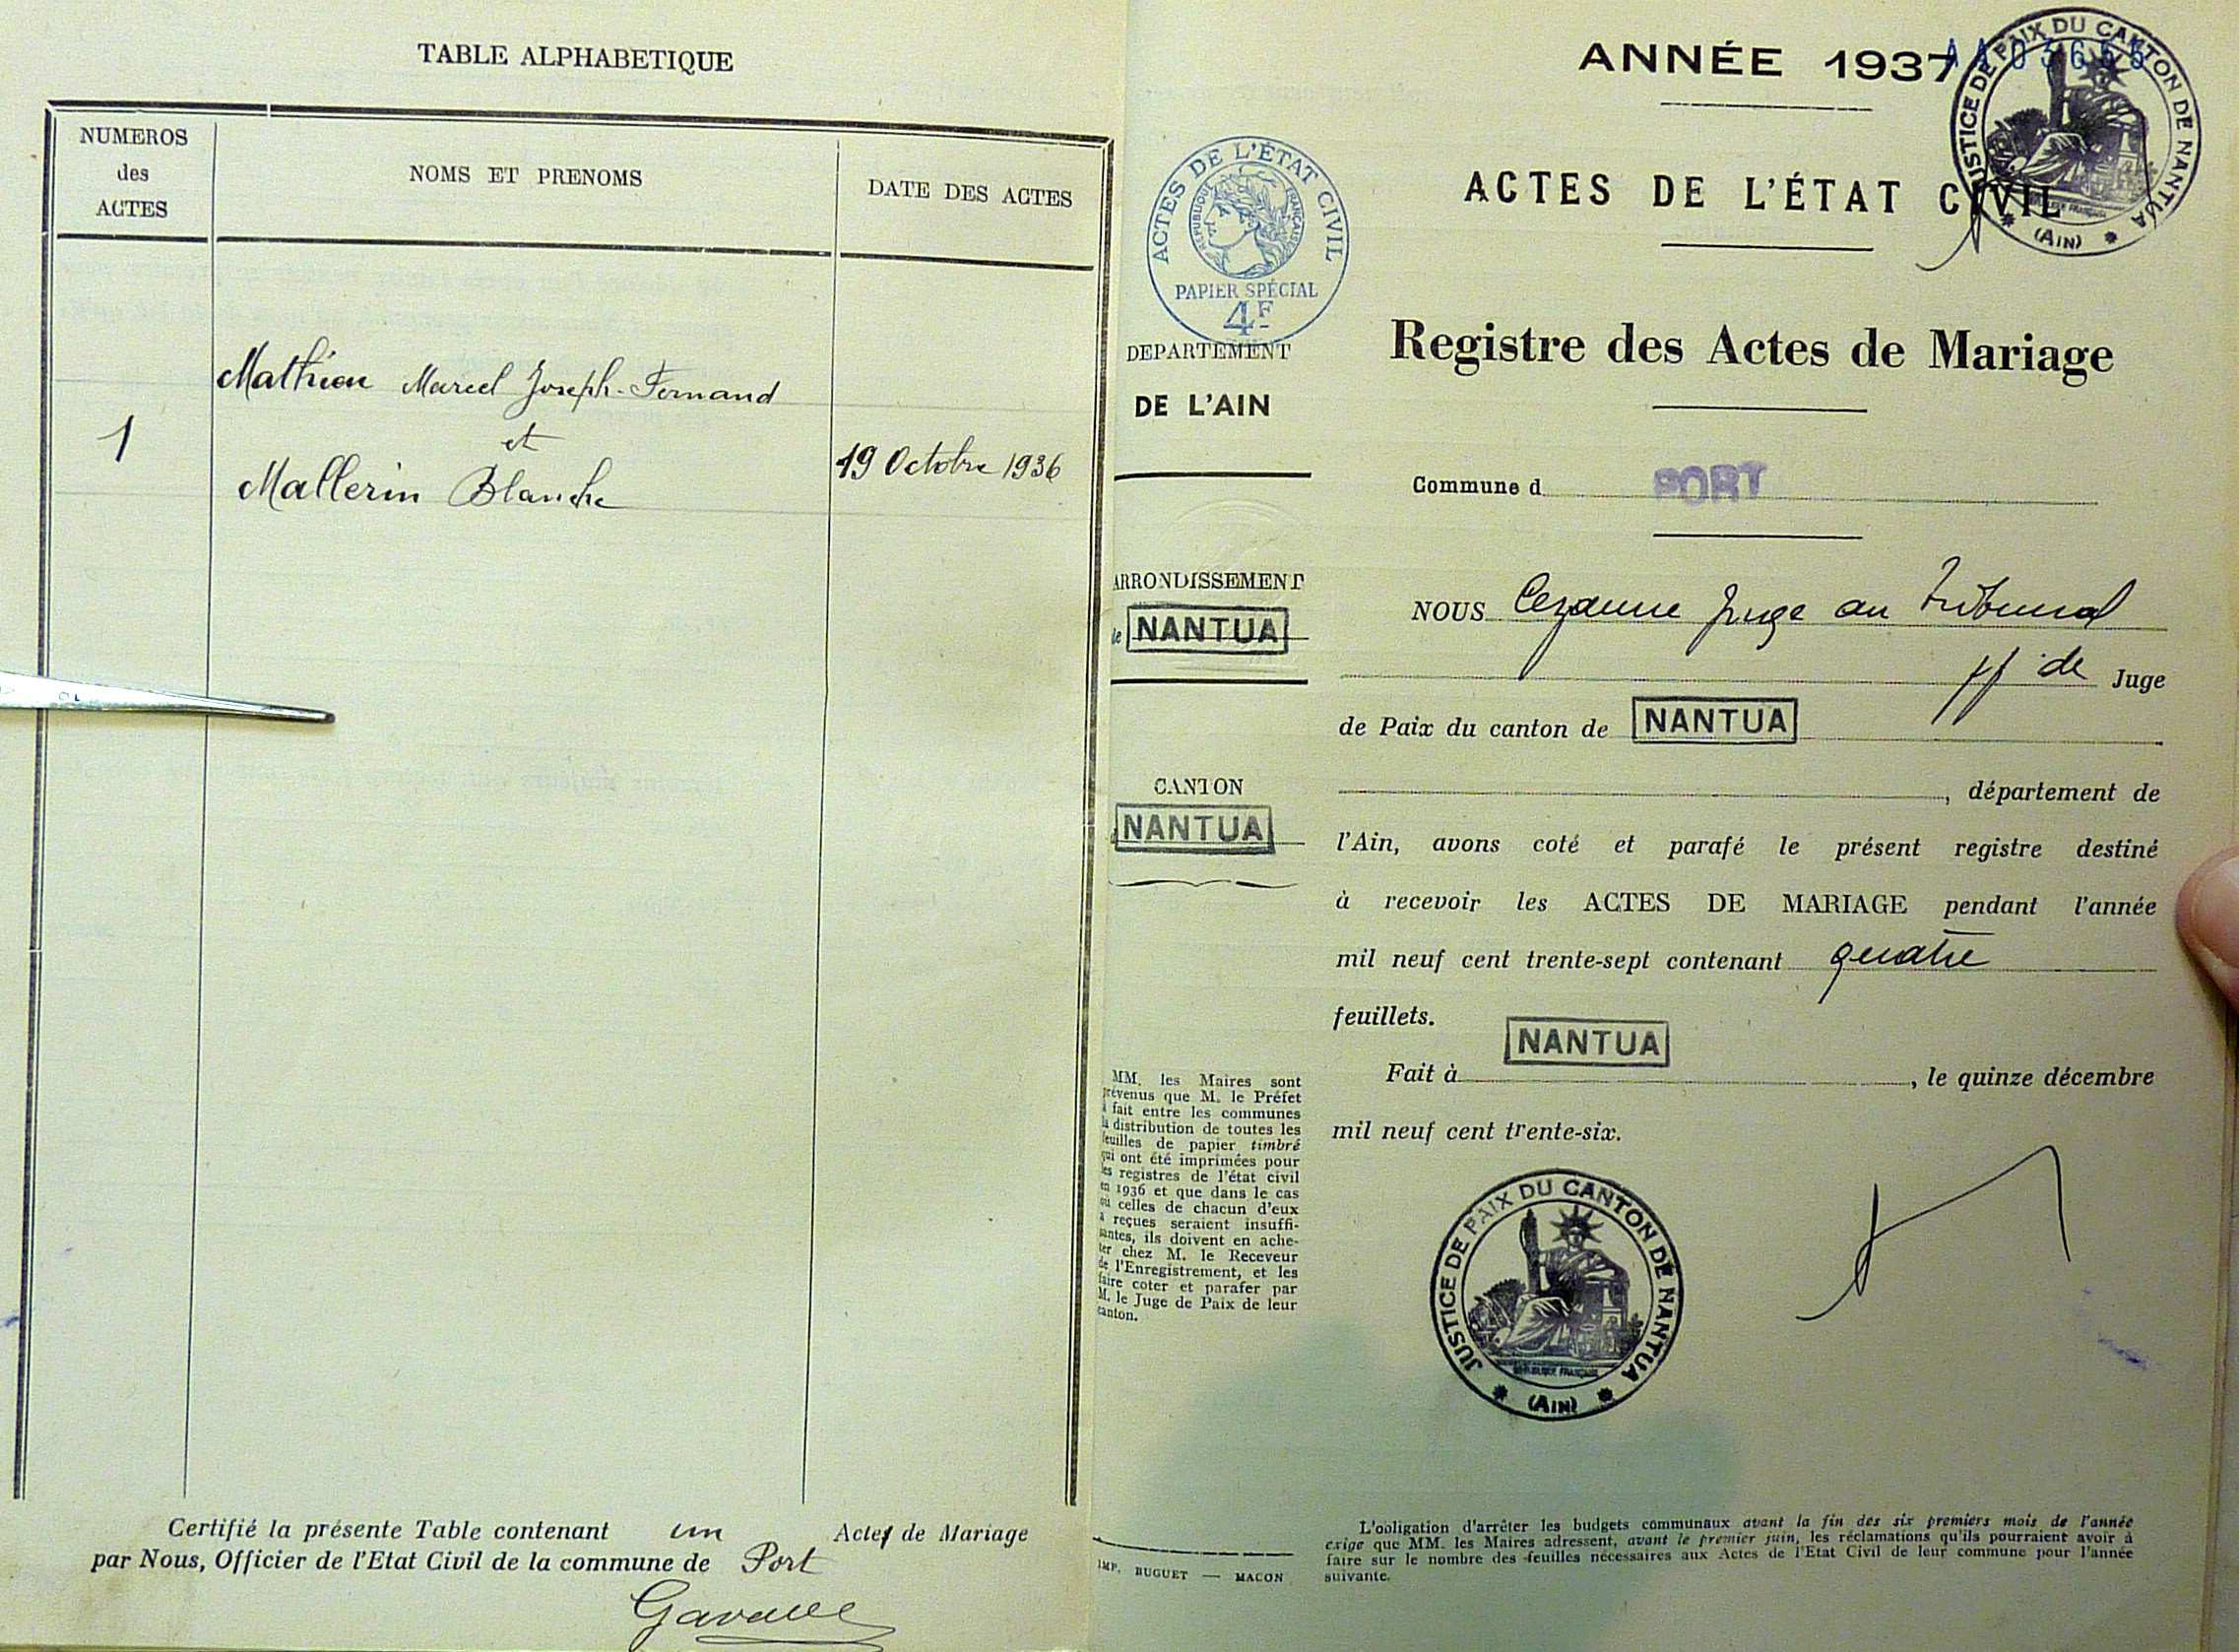 TABLE ALPHABETIQUE
NUMEROS
des
ACTES
NOMS ET PRENOMS
DATE DES ACTES
Mathieu Marcel Joseph-Fernand
1
et
19 Octobre 1936
Mallerin Blanche
Certifié la présente Table contenant un Actes de Mariage
par Nous, Officier de l'Etat Civil de la commune de Port
ANNÉE 1937
JUSTICE DE PAIX DU CANTON DE NANTUA
(AIN)
ACTES DE L'ÉTAT CIVIL
ACTES DE L'ÉTAT CIVIL
RÉPUBLIQUE FRANÇAISE
PAPIER SPÉCIAL
4F
DEPARTEMENT
DE L'AIN
Registre des Actes de Mariage
Commune d PORT
ARRONDISSEMENT
de NANTUA
CANTON
NANTUA
NOUS Cezanne Juge au Tribunal
ff de Juge
de Paix du canton de NANTUA
, département de
l'Ain, avons coté et parafé le présent registre destiné
à recevoir les ACTES DE MARIAGE pendant l'année
mil neuf cent trente-sept contenant quatre
feuillets.
NANTUA
Fait à , le quinze décembre
mil neuf cent trente-six.
MM. les Maires sont
prévenus que M. le Préfet
a fait entre les communes
la distribution de toutes les
feuilles de papier timbré
qui ont été imprimées pour
les registres de l'état civil
en 1936 et que dans le cas
où celles de chacun d'eux
a reçues seraient insuffi-
santes, ils doivent en ache-
ter chez M. le Receveur
de l'Enregistrement, et les
faire coter et parafer par
M. le Juge de Paix de leur
canton.
JUSTICE DE PAIX DU CANTON DE NANTUA
RÉPUBLIQUE FRANÇAISE
(AIN)
IMP. BUGUET — MACON
L'obligation d'arrêter les budgets communaux avant la fin des six premiers mois de l'année
exige que MM. les Maires adressent, avant le premier juin, les réclamations qu'ils pourraient avoir à
faire sur le nombre des feuilles nécessaires aux Actes de l'Etat Civil de leur commune pour l'année
suivante.